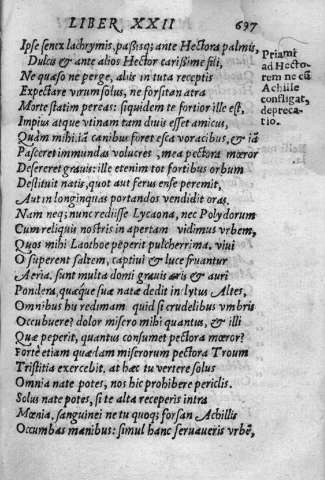 LIBER XXII 697
Ipse senex lachrymis, paßisq; ante Hectora palmis,
Dulcis & ante alios Hector carißime fili,
Ne quaso ne perge, aliis in tuta receptis
Expectare virum solus, ne forsitan atra
Morte statim pereas: siquidem te fortior ille est,
Impius atque vtinam tam diuis esset amicus,
Quàm mihi. iã canibus foret esca voracibus, & iã
Pasceret immundas volucres, mea pectora mœror
Desereret grauis: ille etenim tot fortibus orbum
Destituit natis, quot aut ferus ense peremit,
Aut in longinquas portandos vendidit oras.
Nam neq; nunc rediisse Lycaona, nec Polydorum
Cum reliquis nostris in apertam vidimus vrbem,
Quos mihi Laothoe peperit pulcherrima, viui
O superent saltem, captiui & luce fruantur
Aeria. sunt multa domi grauis æris & auri
Pondera, quæque suæ natæ dedit inclytus Altes,
Omnibus his redimam quid si crudelibus vmbris
Occubuere? dolor misero mihi quantus, & illi
Quæ peperit, quantus consumet pectora mœror?
Forte etiam quædam miserorum pectora Troum
Tristitia exercebit, at hæc tu vertere solus
Omnia nate potes, nos hic prohibere periclis.
Solus nate potes, si te alta receperis intra
Mœnia, sanguinei ne tu quoq; forsan Achillis
Occumbas manibus: simul hanc seruaueris vrbẽ,
Priami
ad Hecto-
rem ne cũ
Achille
confligat,
depreca-
tio.